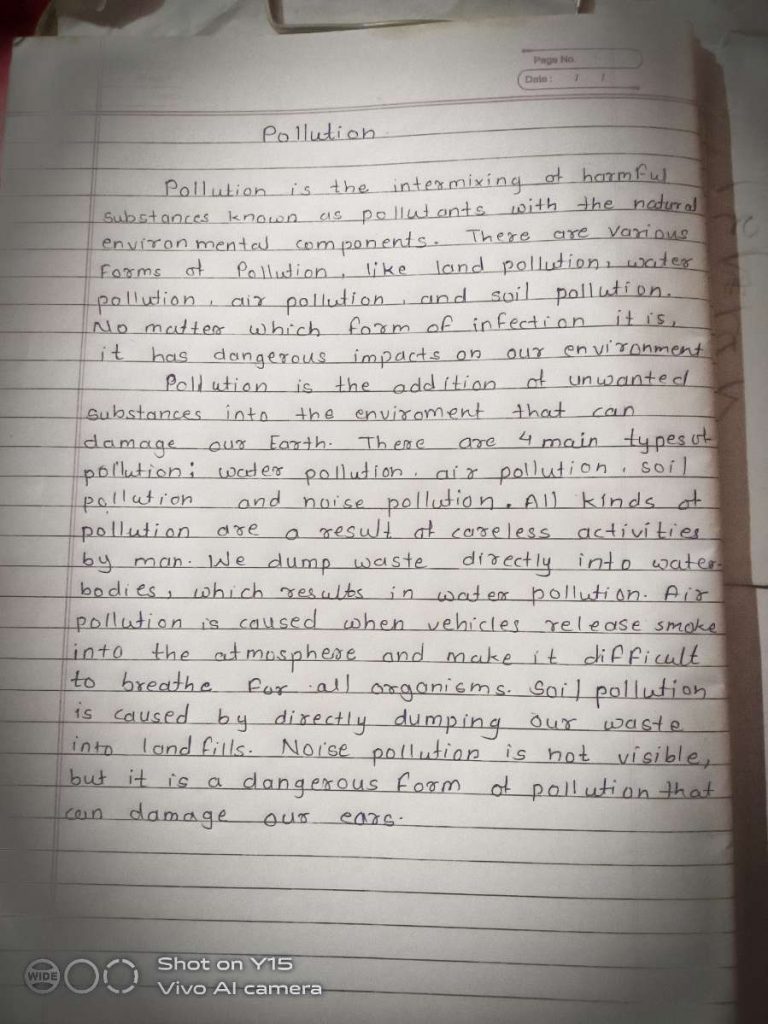 Page No.
Date: / /
Pollution
Pollution is the intermixing of harmful
substances known as pollutants with the natural
environmental components. There are various
forms of Pollution, like land pollution, water
pollution, air pollution, and soil pollution.
No matter which form of infection it is,
it has dangerous impacts on our environment
Pollution is the addition of unwanted
substances into the enviroment that can
damage our Earth. There are 4 main types of
pollution: water pollution, air pollution, soil
pollution and noise pollution. All kinds of
pollution are a result of careless activities
by man. We dump waste directly into water-
bodies, which results in water pollution. Air
pollution is caused when vehicles release smoke
into the atmosphere and make it difficult
to breathe for all organisms. Soil pollution
is caused by directly dumping our waste
into landfills. Noise pollution is not visible,
but it is a dangerous form of pollution that
can damage our ears.
WIDE
Shot on Y15
Vivo AI camera